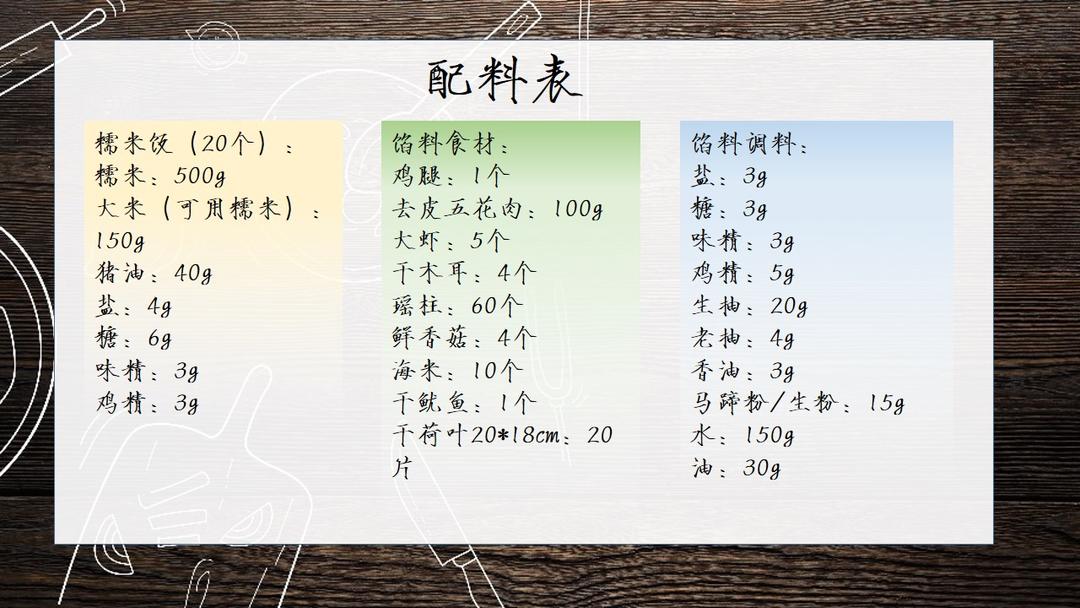 配料表
糯米饭（20个）：
糯米：500g
大米（可用糯米）：
150g
猪油：40g
盐：4g
糖：6g
味精：3g
鸡精：3g
馅料食材：
鸡腿：1个
去皮五花肉：100g
大虾：5个
干木耳：4个
瑶柱：60个
鲜香菇：4个
海米：10个
干鱿鱼：1个
干荷叶20*18cm：20
片
馅料调料：
盐：3g
糖：3g
味精：3g
鸡精：5g
生抽：20g
老抽：4g
香油：3g
马蹄粉/生粉：15g
水：150g
油：30g